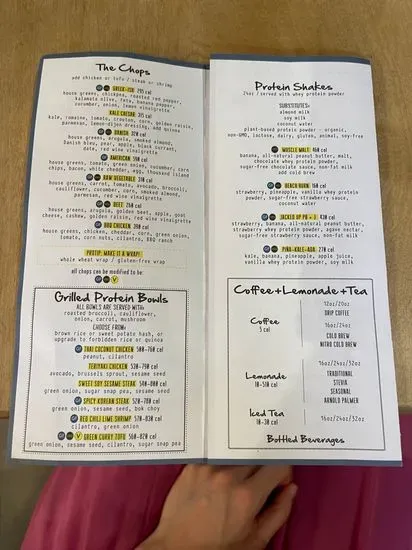 The Chops
add chicken or tofu / steak or shrimp
GREEK-ISH 295 cal
house greens, chickpea, roasted red pepper,
kalamata olive, feta, banana pepper,
cucumber, onion, lemon vinaigrette
KALE CAESAR 315 cal
kale, romaine, tomato, crouton, corn, golden raisin,
parmesan, lemon-dijon dressing, add quinoa
DANISH 320 cal
house greens, arugula, smoked almond,
Danish bleu, pear, apple, black currant,
date, red wine vinaigrette
AMERICAN 590 cal
house greens, tomato, green onion, cucumber, corn
chips, bacon, white cheddar, egg, thousand island
RAW VEGETABLE 210 cal
house greens, carrot, tomato, avocado, broccoli,
cauliflower, cucumber, corn, smoked almond,
parmesan, red wine vinaigrette
BEET 260 cal
house greens, arugula, golden beet, apple, goat
cheese, cashew, golden raisin, red wine vinaigrette
BBQ CHICKEN 390 cal
house greens, chicken, cheddar, corn, green onion,
tomato, corn nuts, cilantro, BBQ ranch
PROTIP: MAKE IT A WRAP!
whole wheat wrap / gluten-free wrap
all chops can be modified to be:
V
Grilled Protein Bowls
ALL BOWLS ARE SERVED WITH:
roasted broccoli, cauliflower,
onion, carrot, mushroom
CHOOSE FROM:
brown rice or sweet potato hash, or
upgrade to forbidden rice or quinoa
THAI COCONUT CHICKEN 500-760 cal
peanut, cilantro
TERIYAKI CHICKEN 530-790 cal
avocado, brussels sprout, sesame seed
SWEET SOY SESAME STEAK 540-800 cal
green onion, sugar snap pea, sesame seed
SPICY KOREAN STEAK 520-780 cal
green onion, sesame seed, bok choy
RED CHILI LIME SHRIMP 570-830 cal
cilantro, green onion
V GREEN CURRY TOFU 560-820 cal
green onion, sesame seed, cilantro, sugar snap pea
Protein Shakes
24oz / served with whey protein powder
SUBSTITUTES:
almond milk
soy milk
coconut water
plant-based protein powder - organic,
non-GMO, lactose, dairy, gluten, animal, soy-free
MUSCLE MALT 460 cal
banana, all-natural peanut butter, malt,
chocolate whey protein powder,
sugar-free chocolate sauce, non-fat milk
add cold brew
BEACH BURN 160 cal
strawberry, pineapple, vanilla whey protein
powder, sugar-free strawberry sauce,
coconut water
JACKED UP PB + J 430 cal
strawberry, banana, all-natural peanut butter,
strawberry whey protein powder, agave nectar,
sugar-free strawberry sauce, non-fat milk
PIÑA-KALE-ADA 270 cal
kale, banana, pineapple, apple juice,
vanilla whey protein powder, soy milk
Coffee+Lemonade+Tea
Coffee
5 cal
12oz/20oz
DRIP COFFEE
16oz/24oz
COLD BREW
NITRO COLD BREW
Lemonade
10-510 cal
16oz/24oz/32oz
TRADITIONAL
STEVIA
SEASONAL
ARNOLD PALMER
Iced Tea
10-30 cal
16oz/24oz/32oz
Bottled Beverages